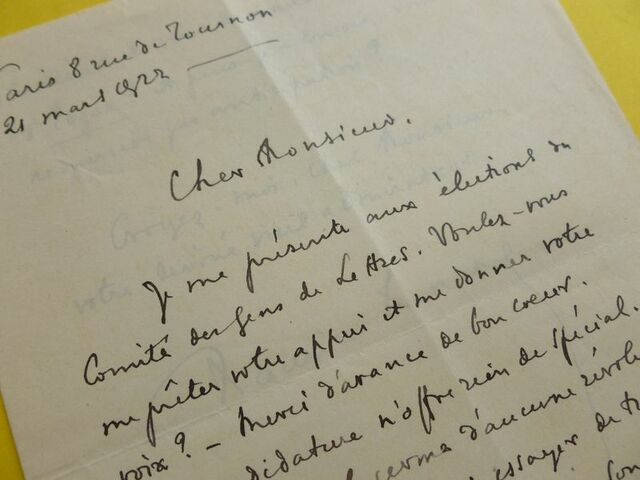 Paris 8 rue de Tournon
21 mars 1922
Cher Monsieur.
Je me présente aux élections du
Comité des Gens de Lettres. Voulez-vous
me prêter votre appui et me donner votre
voix ? – Merci d'avance de bon cœur.
didature n'offre rien de spécial.
germa d'aucune révolu
essayer de
son